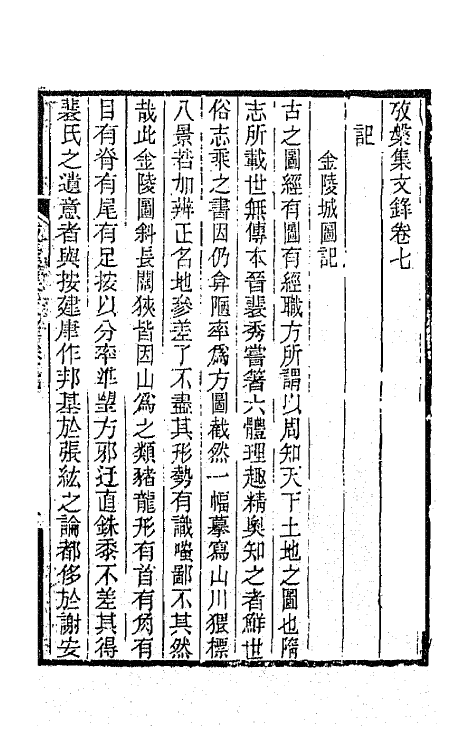 攷槃集文錄卷七
記
金陵城圖記
古之圖經有圖有經職方所謂以周知天下土地之圖也隋
志所載世無傳本晉裴秀嘗箸六體理趣精奧知之者鮮世
俗志乘之書因仍弇陋率爲方圖截然一幅摹寫山川猥標
八景若加辨正名地參差了不盡其形勢有識嗤鄙不其然
哉此金陵圖斜長闊狹皆因山爲之類豬龍形有首有角有
目有脊有尾有足按以分率準望方邪迂直銖黍不差其得
裴氏之遺意者與按建康作邦基於張紘之論都侈於謝安